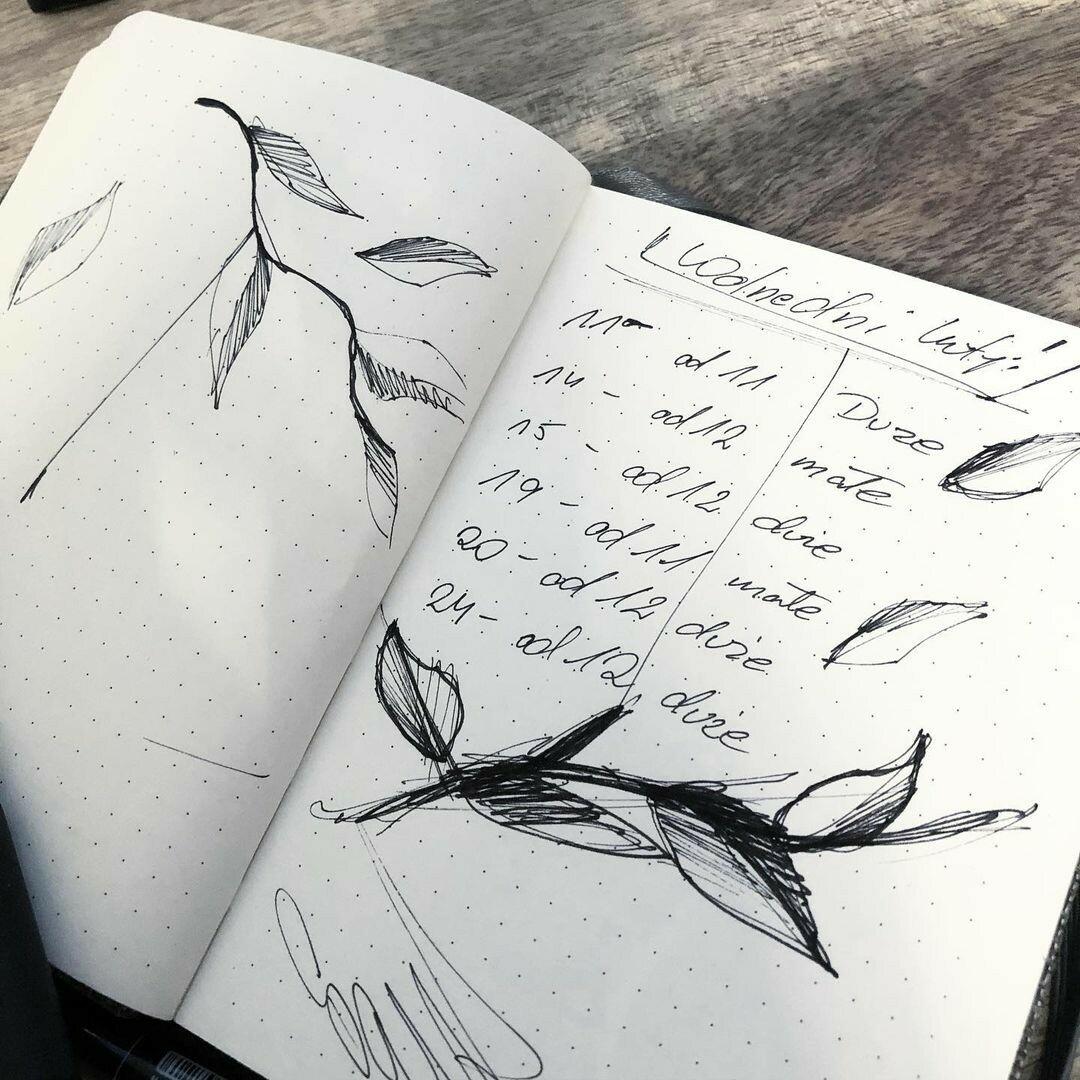 ! Wolne dni: luty: !
11 - od 11 Duże
14 - od 12 małe
15 - od 12 duże
19 - od 11 małe
20 - od 12 duże
24 - od 12 duże